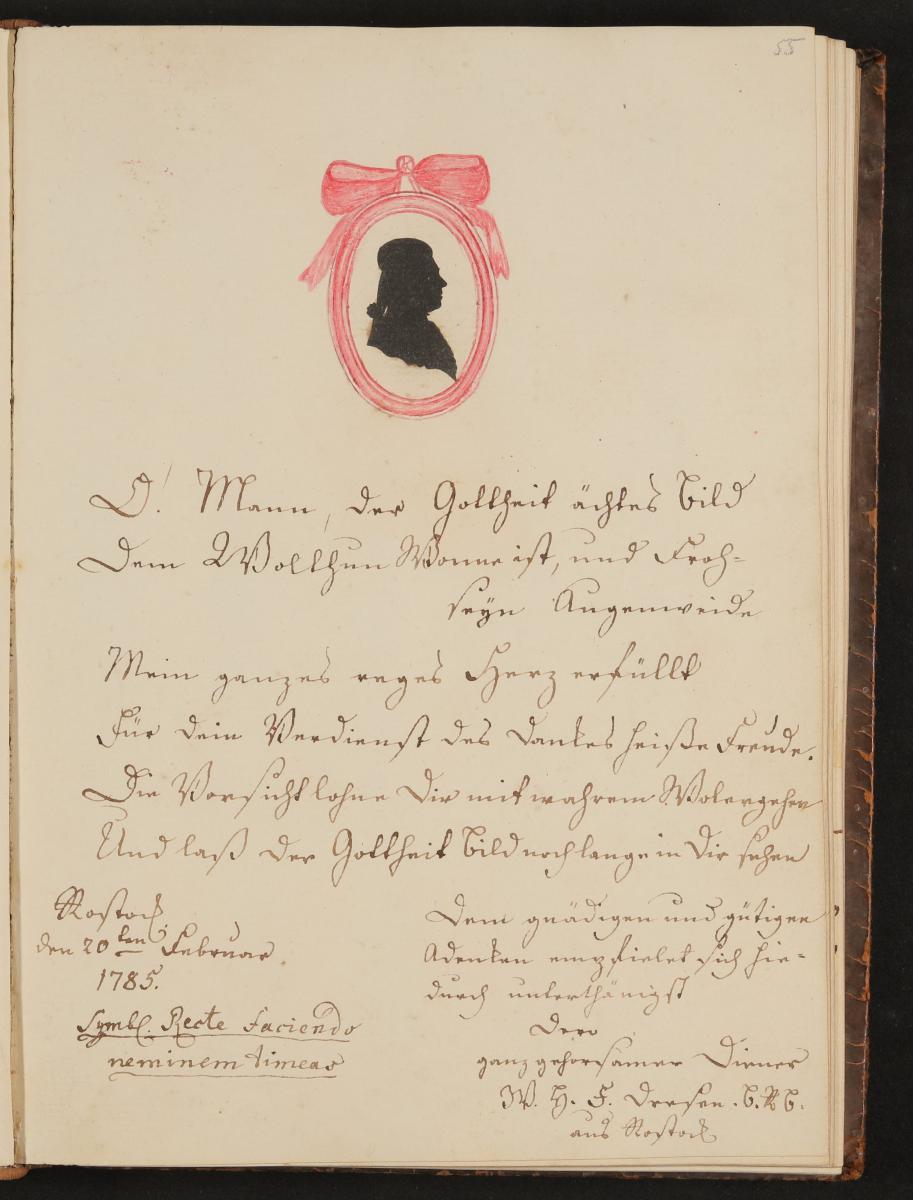 55
O! Mann, der Gottheit ächtes Bild
Dem Wolthun Wonne ist, und Froh-
seyn Augenweide
Mein ganzes reges Herz erfüllt
Für dein Verdienst des Dankes heiße Freude.
Die Vorsicht lohne Dir mit wahrem Wolergehen
Und laß der Gottheit Bild noch lange in Dir sehen
Rostock
den 20ten Februar.
1785.
Symbl. Recte faciendo
neminem timeas
Dem gnädigen und gütigen
Adenken empfielet sich hie-
durch unterthänigst
Dero
ganz gehorsamer Diener
W. H. F. Dresen
aus Rostock